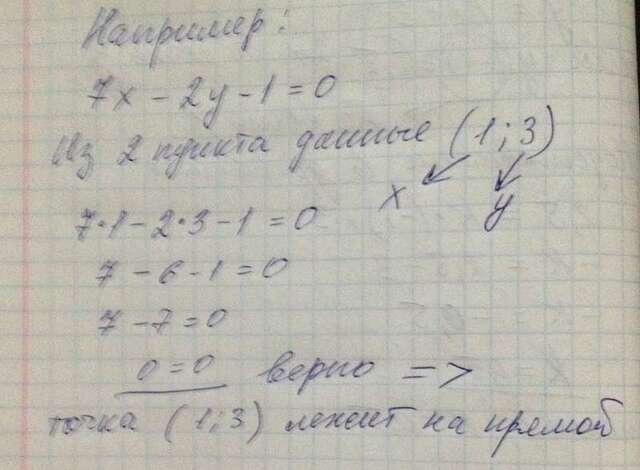 Например:
7x - 2y - 1 = 0
Из 2 пункта данные (1; 3)
x y
7·1 - 2·3 - 1 = 0
7 - 6 - 1 = 0
7 - 7 = 0
0 = 0 верно =>
точка (1; 3) лежит на прямой